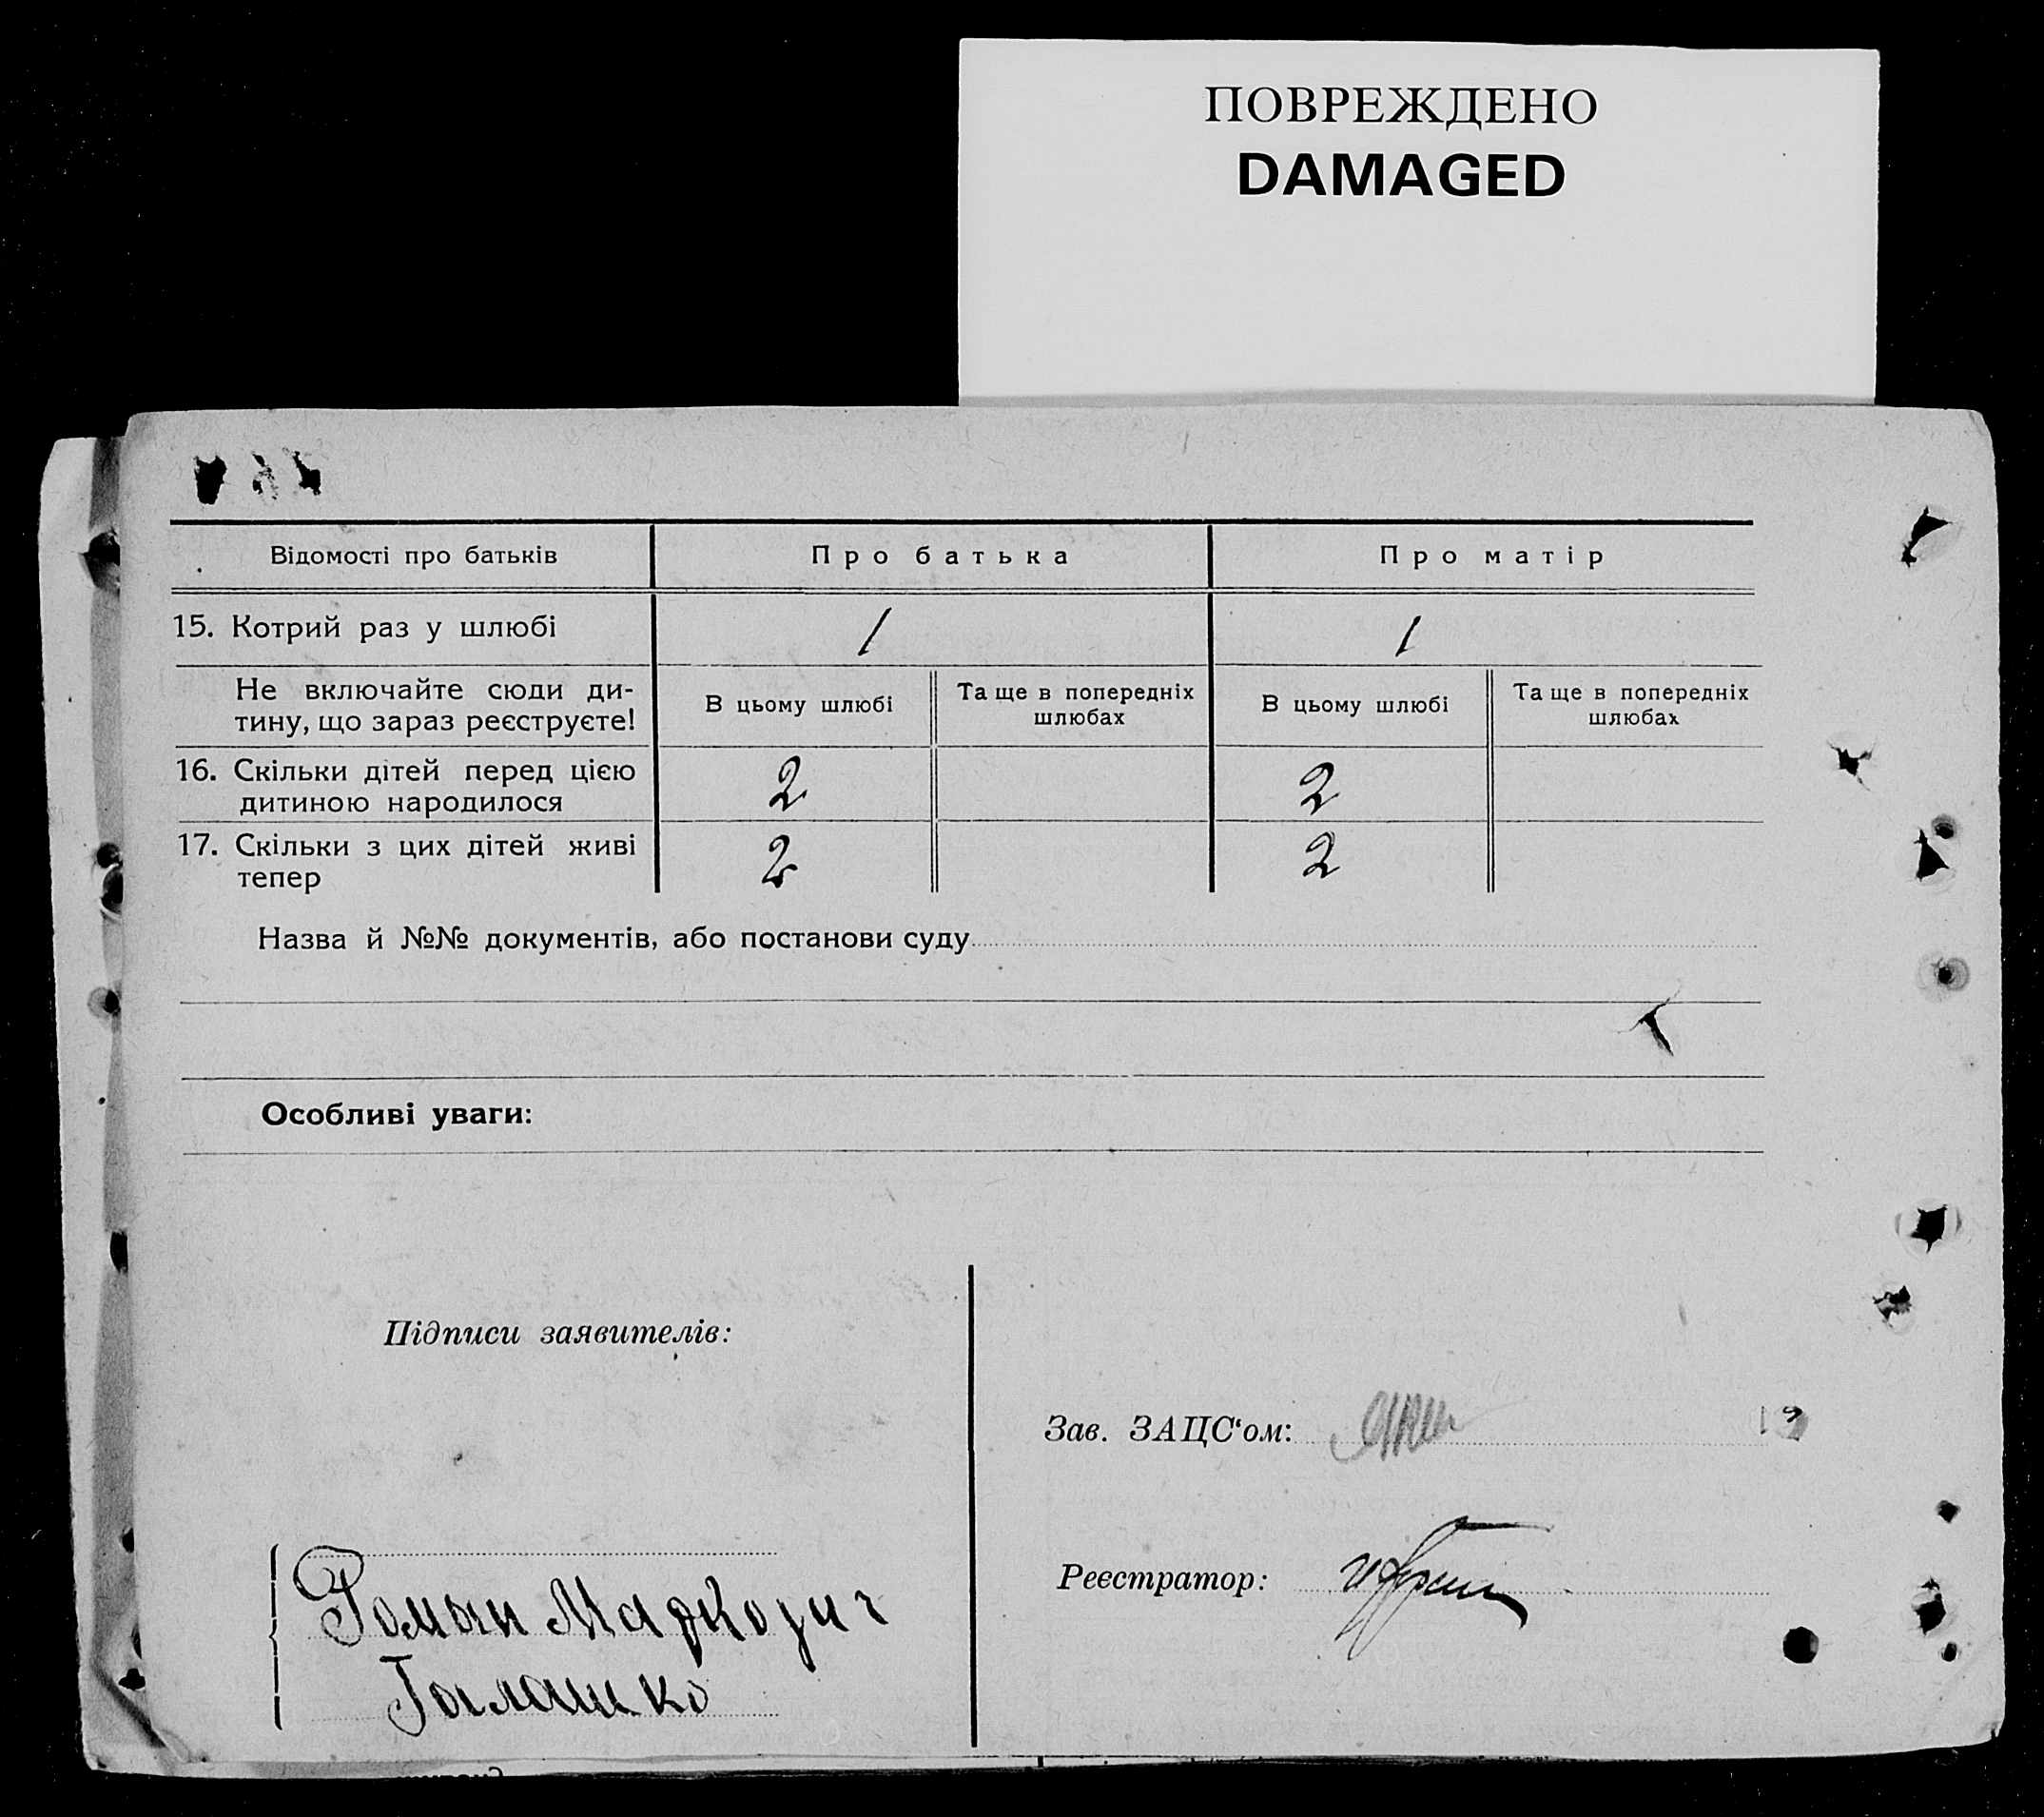 ПОВРЕЖДЕНО
DAMAGED
Відомості про батьків
Про батька
Про матір
15. Котрий раз у шлюбі
1
1
Не включайте сюди ди-
тину, що зараз реєструєте!
В цьому шлюбі
Та ще в попередніх
шлюбах
В цьому шлюбі
Та ще в попередніх
шлюбах
16. Скільки дітей перед цією
дитиною народилося
2
2
17. Скільки з цих дітей живі
тепер
2
2
Назва й №№ документів, або постанови суду
Особливі уваги:
Підписи заявителів:
Зав. ЗАЦС‘ом:
Реєстратор:
Роман